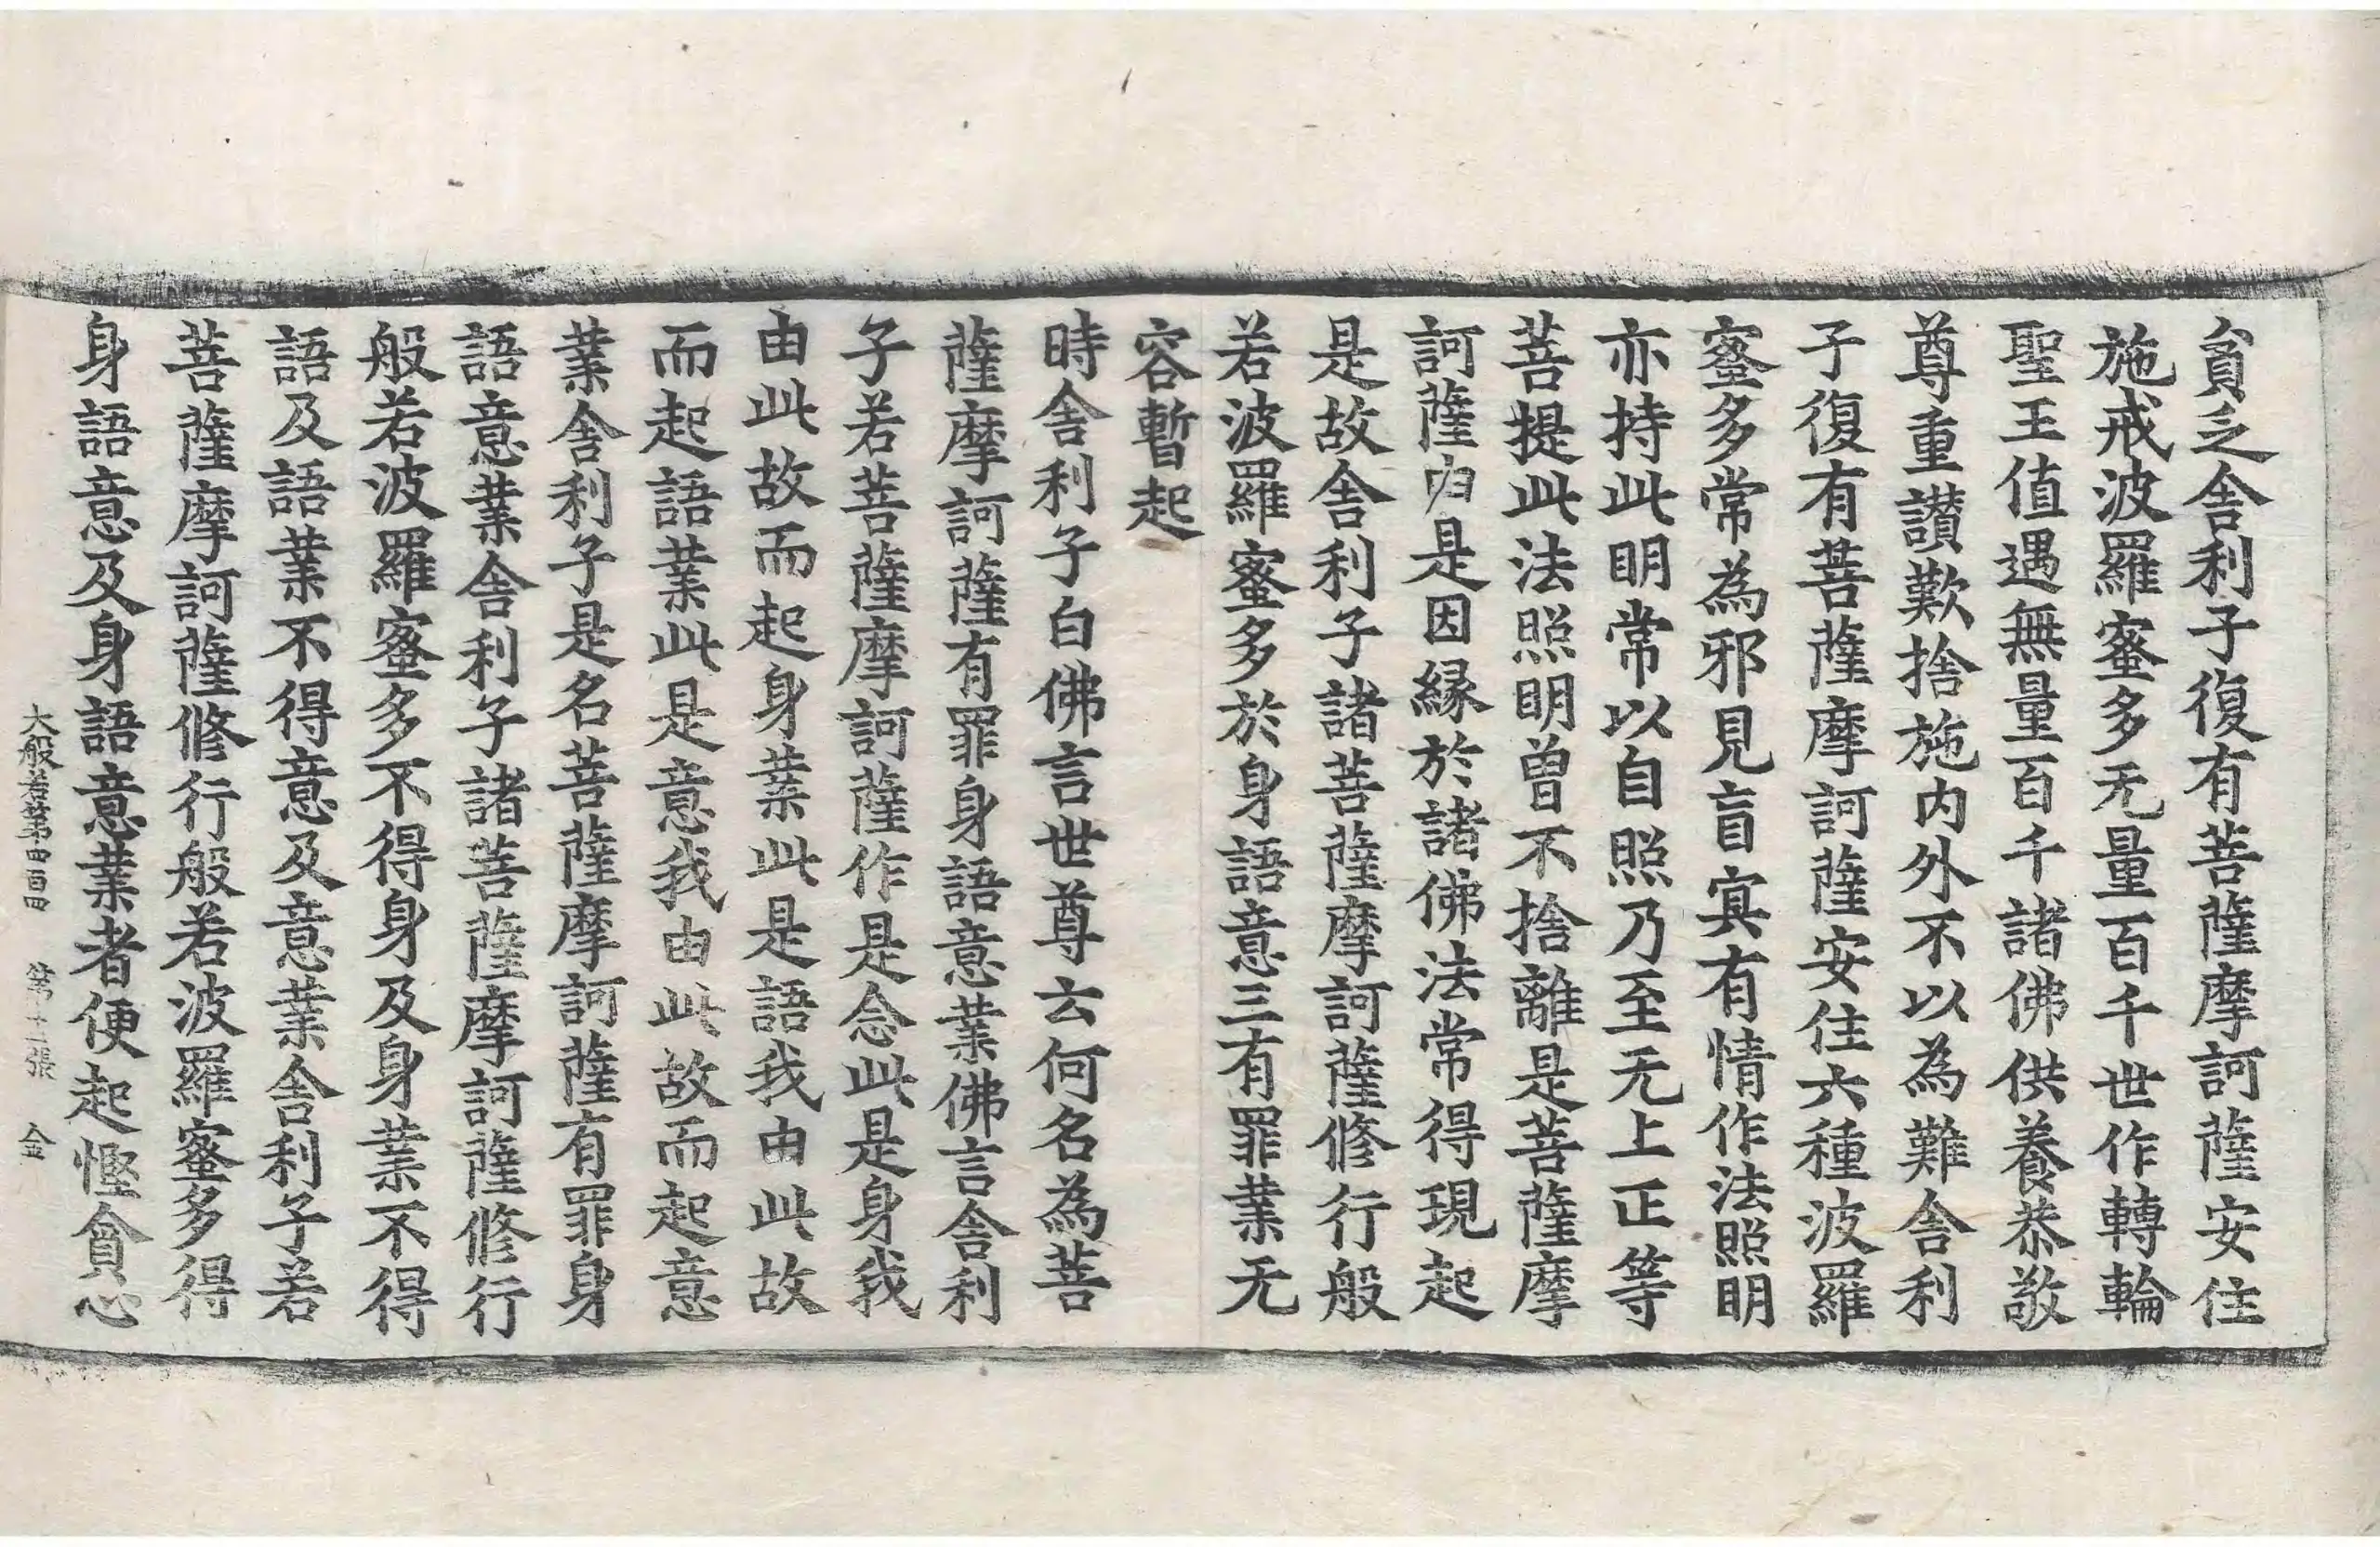 貧乏舍利子復有菩薩摩訶薩安住
施戒波羅蜜多无量百千世作轉輪
聖王值遇無量百千諸佛供養恭敬
尊重讃歎捨施內外不以為難舍利
子復有菩薩摩訶薩安住六種波羅
蜜多常為邪見盲冥有情作法照明
亦持此明常以自照乃至无上正等
菩提此法照明曾不捨離是菩薩摩
訶薩由是因緣於諸佛法常得現起
是故舍利子諸菩薩摩訶薩修行般
若波羅蜜多於身語意三有罪業无
容暫起
時舍利子白佛言世尊云何名為菩
薩摩訶薩有罪身語意業佛言舍利
子若菩薩摩訶薩作是念此是身我
由此故而起身業此是語我由此故
而起語業此是意我由此故而起意
業舍利子是名菩薩摩訶薩有罪身
語意業舍利子諸菩薩摩訶薩修行
般若波羅蜜多不得身及身業不得
語及語業不得意及意業舍利子若
菩薩摩訶薩修行般若波羅蜜多得
身語意及身語意業者便起慳貪心
大般若第四百四 第十二張 金